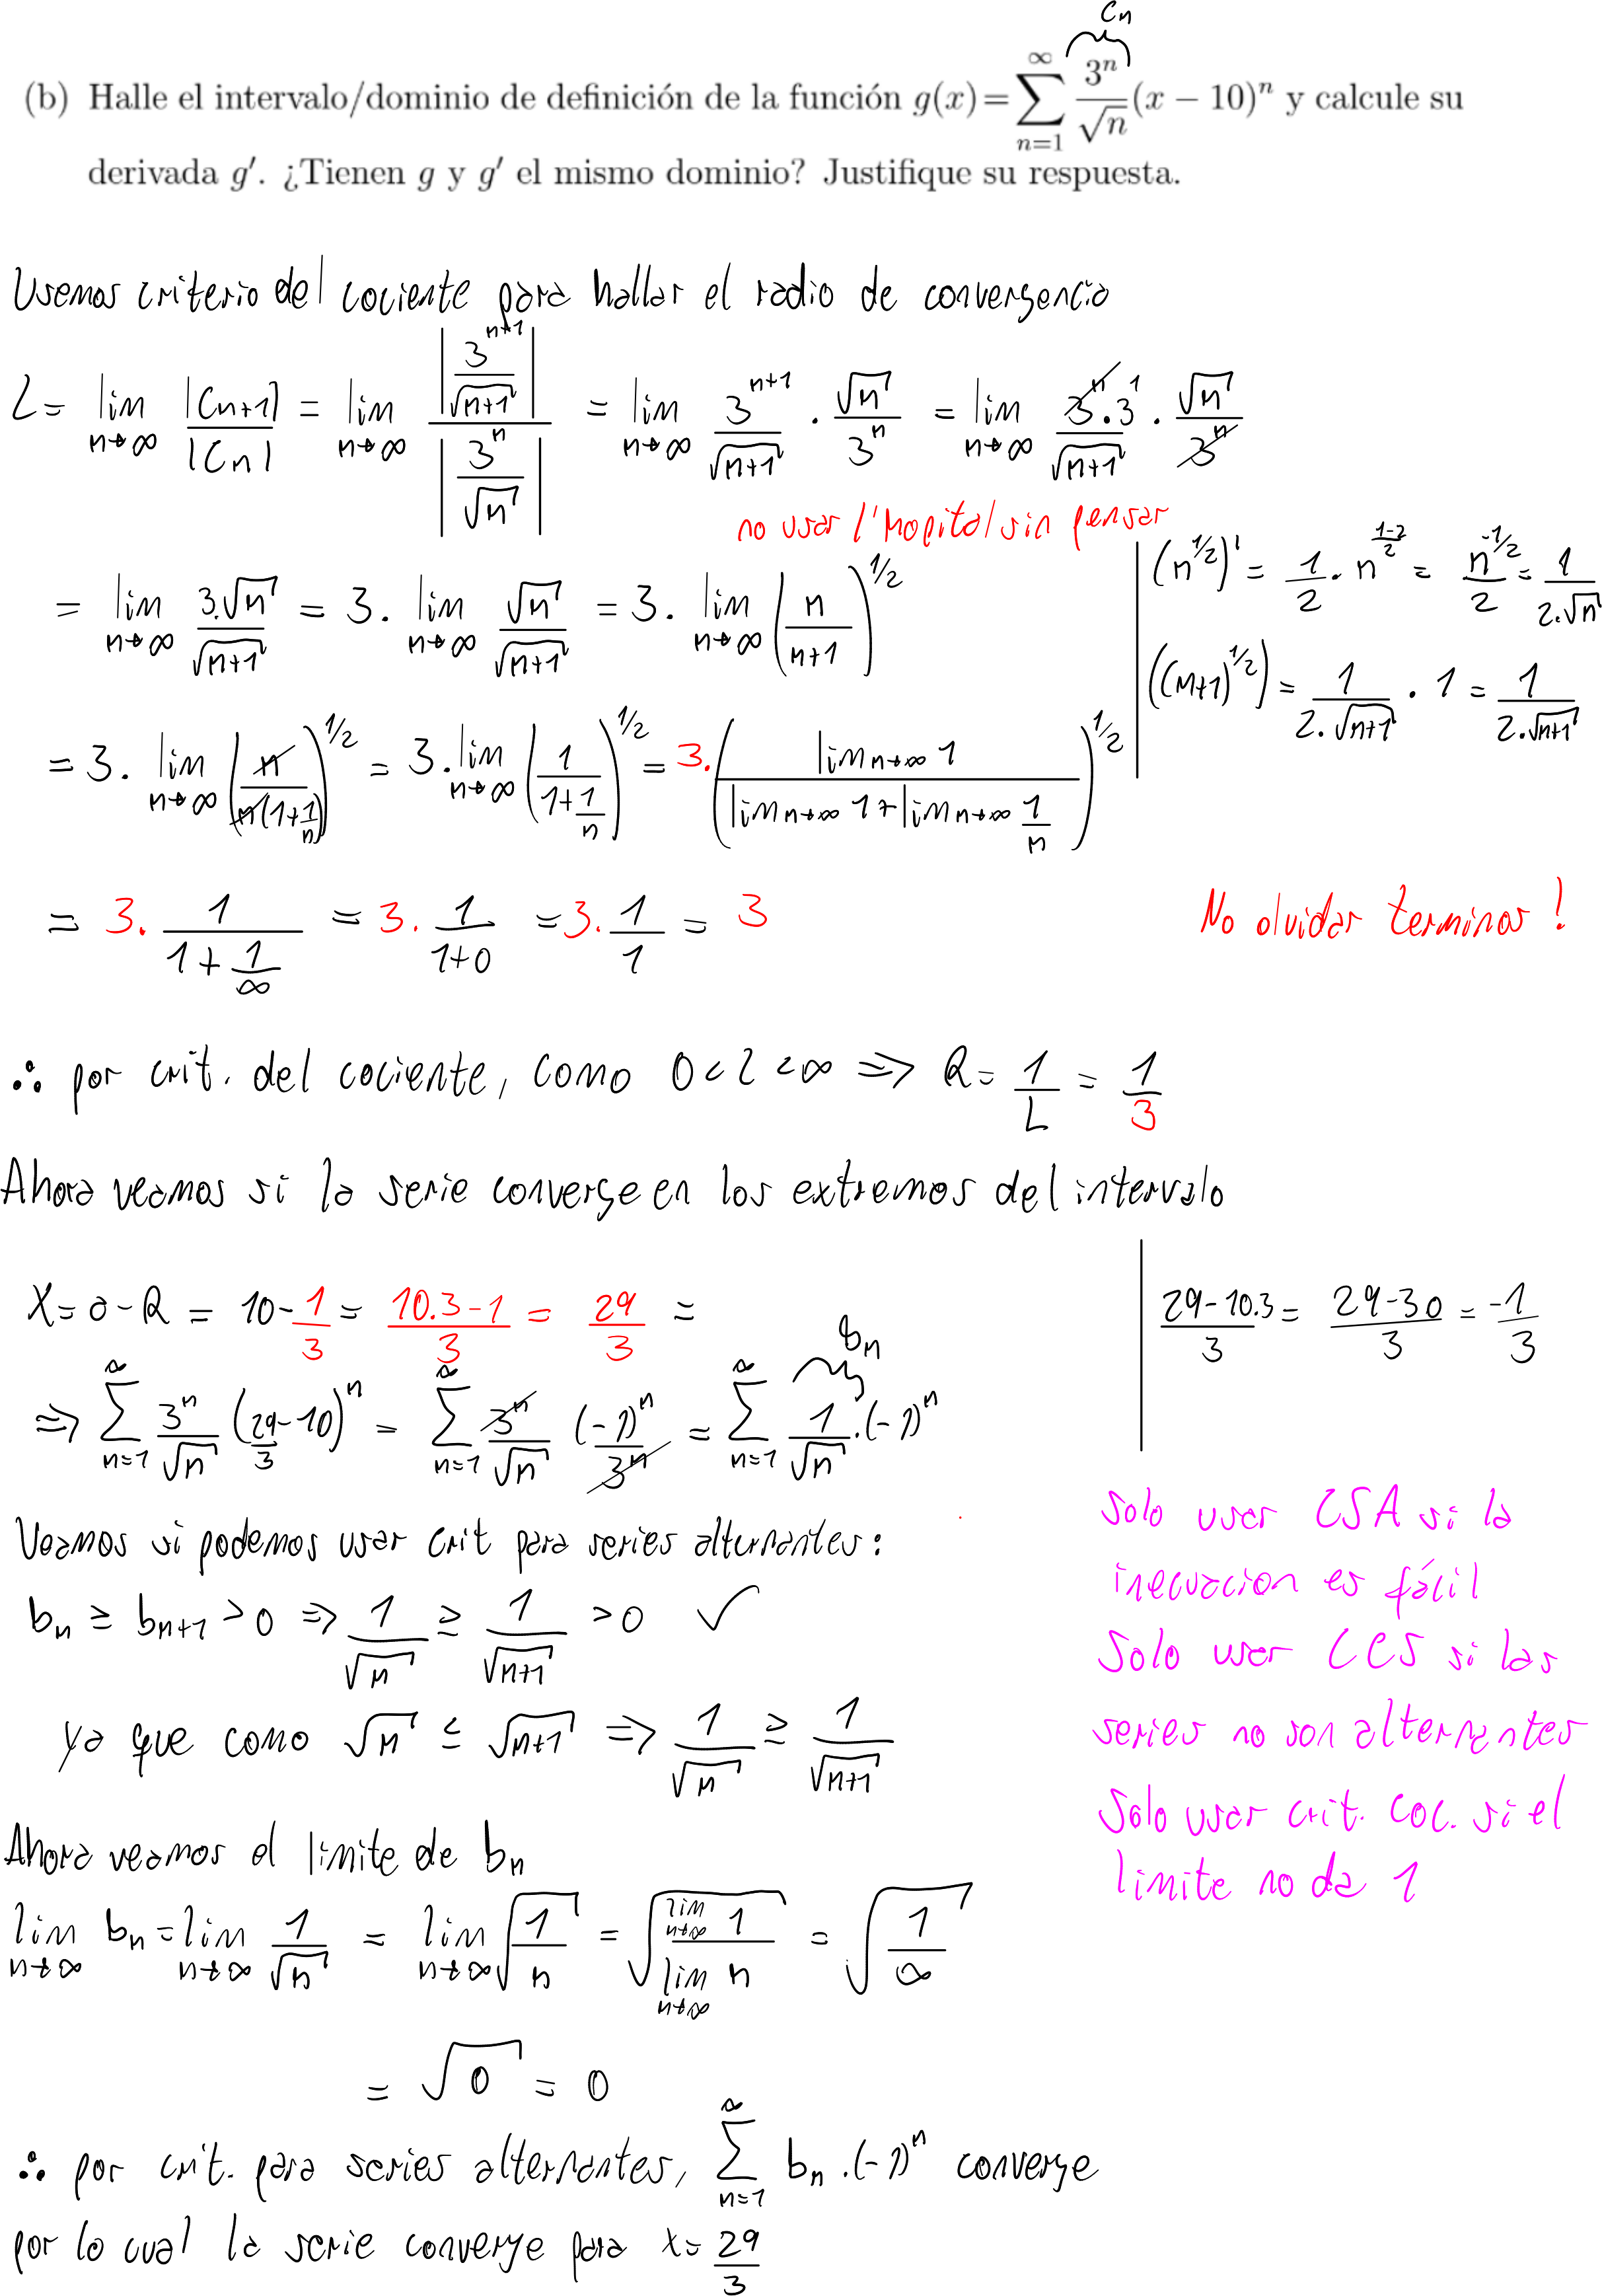 (b) Halle el intervalo/dominio de definición de la función g(x) = \sum_{n=1}^{∞} \frac{3^n}{\sqrt{n}} (x − 10)^n y calcule su
c_n
derivada g′. ¿Tienen g y g′ el mismo dominio? Justifique su respuesta.
Usemos criterio del cociente para hallar el radio de convergencia
L = lim_{n→∞} \frac{|C_{n+1}|}{|C_n|} = lim_{n→∞} \frac{|\frac{3^{n+1}}{\sqrt{n+1}}|}{|\frac{3^n}{\sqrt{n}}|} = lim_{n→∞} \frac{3^{n+1}}{\sqrt{n+1}} · \frac{\sqrt{n}}{3^n} = lim_{n→∞} \frac{3^n · 3^1}{\sqrt{n+1}} · \frac{\sqrt{n}}{3^n}
no usar l'Hopital sin pensar
= lim_{n→∞} \frac{3.\sqrt{n}}{\sqrt{n+1}} = 3 · lim_{n→∞} \frac{\sqrt{n}}{\sqrt{n+1}} = 3 · lim_{n→∞} (\frac{n}{n+1})^{1/2}
(n^{1/2})' = \frac{1}{2} · n^{\frac{1-2}{2}} = \frac{n^{-1/2}}{2} = \frac{1}{2.\sqrt{n}}
((n+1)^{1/2}) = \frac{1}{2.\sqrt{n+1}} · 1 = \frac{1}{2.\sqrt{n+1}}
= 3 · lim_{n→∞} (\frac{n}{n(1+\frac{1}{n})})^{1/2} = 3 · lim_{n→∞} (\frac{1}{1+\frac{1}{n}})^{1/2} = 3. (\frac{lim_{n→∞} 1}{lim_{n→∞} 1 + lim_{n→∞} \frac{1}{n}})^{1/2}
= 3. \frac{1}{1+\frac{1}{∞}} = 3. \frac{1}{1+0} = 3. \frac{1}{1} = 3
No olvidar terminos!
∴ por crit. del cociente, como 0 < L < ∞ ⇒ R = \frac{1}{L} = \frac{1}{3}
Ahora veamos si la serie converge en los extremos del intervalo
X = a − R = 10 − \frac{1}{3} = \frac{10.3−1}{3} = \frac{29}{3} =
\frac{29−10.3}{3} = \frac{29−30}{3} = \frac{−1}{3}
b_n
⇒ \sum_{n=1}^{∞} \frac{3^n}{\sqrt{n}} (\frac{29}{3} − 10)^n = \sum_{n=1}^{∞} \frac{3^n}{\sqrt{n}} \frac{(−1)^n}{3^n} = \sum_{n=1}^{∞} \frac{1}{\sqrt{n}} · (−1)^n
Veamos si podemos usar crit para series alternantes:
b_n ≥ b_{n+1} > 0 ⇒ \frac{1}{\sqrt{n}} ≥ \frac{1}{\sqrt{n+1}} > 0 ✓
ya que como \sqrt{n} ≤ \sqrt{n+1} ⇒ \frac{1}{\sqrt{n}} ≥ \frac{1}{\sqrt{n+1}}
Solo usar CSA si la
inecuacion es fácil
Solo usar CCS si las
series no son alternantes
Solo usar crit. coc. si el
limite no da 1
Ahora veamos el limite de b_n
lim_{n→∞} b_n = lim_{n→∞} \frac{1}{\sqrt{n}} = lim_{n→∞} \sqrt{\frac{1}{n}} = \sqrt{\frac{lim_{n→∞} 1}{lim_{n→∞} n}} = \sqrt{\frac{1}{∞}}
= \sqrt{0} = 0
∴ por crit. para series alternantes, \sum_{n=1}^{∞} b_n .(−1)^n converge
por lo cual la serie converge para x = \frac{29}{3}